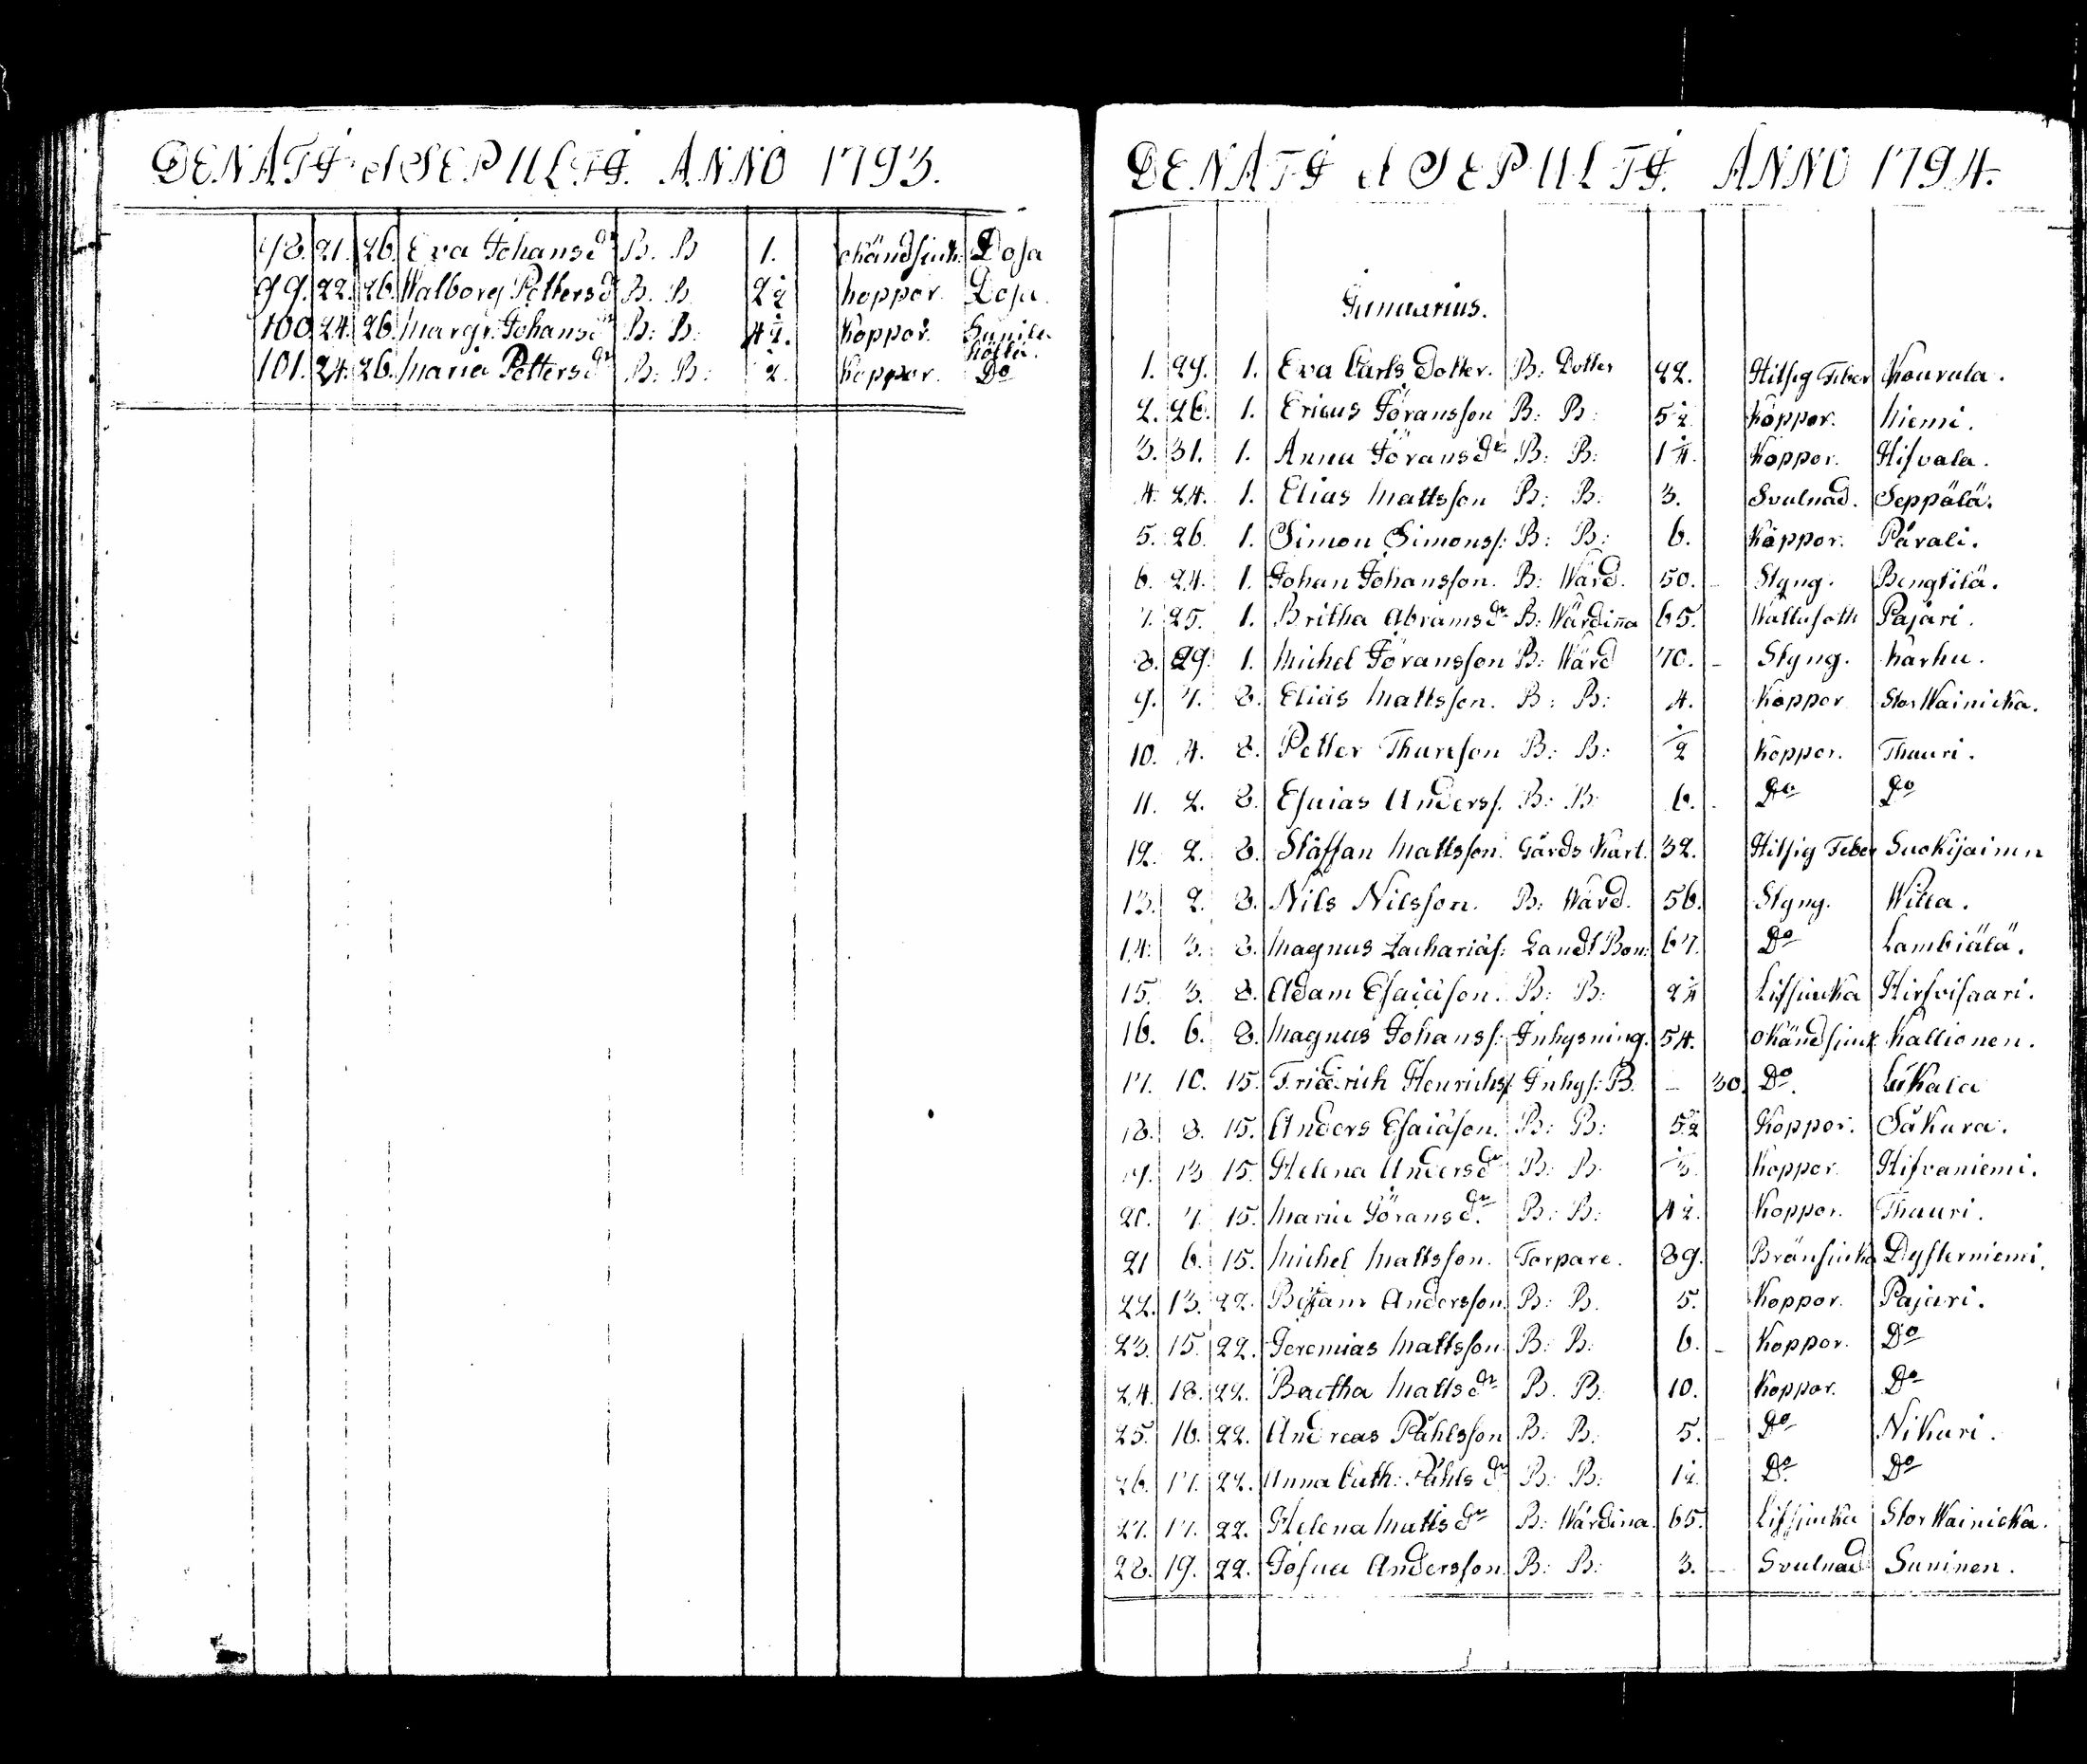 DENATI et SEPULTI. ANNO 1793.
98. 21. 26. Eva Johansdr B. B 1. okändsiuk. Dosa
99. 22. 26. Walborg Pettersdr B. B. 2½ koppor. Dosa.
100. 24. 26. Margr. Johansdr B: B: 4½. koppor. Sunila
101. 24. 26. Maria Pettersdr B: B: ½. koppor. Do
DENATI et SEPULTI. ANNO 1794.
Januarius.
1. 29. 1. Eva Carls Dotter. B: Dotter 22. Hitsig Feber Kourula.
2. 26. 1. Ericus Göransson B: B: 5½ koppor. Niemi.
3. 31. 1. Anna Göransdr B: B: 1¼. Koppor. Hifvala.
4. 24. 1. Elias Mattsson B: B. 3. Svulnad. Seppälä.
5. 26. 1. Simon Simonss: B: B: 6. Koppor. Pärali.
6. 24. 1. Johan Johansson. B: Wärd. 50. Styng. Bengtilä.
7. 25. 1. Britha Abramsdr B: Wärdinna 65. Wattusoth Pajari.
8. 29. 1. Michel Göransson B: Wärd 70. Styng. Karhu.
9. 7. 8. Elias Mattsson. B: B: 4. Koppor Stor Wainicka.
10. 4. 8. Petter Thuresson B: B: ½ koppor. Thauri.
11. 2. 8. Esaias Anderss. B: B: 6. Do Do
12. 2. 8. Staffan Mattsson. Gårds Karl. 32. Hitsig Feber Suokijainen
13. 2. 8. Nils Nilsson. B: Wärd. 56. Styng. Wilta.
14. 3. 8. Magnus Zachariäs: Landt Bon: 67. Do Lambiälä.
15. 3. 8. Adam Esaiason. B: B: 2¼ Lissiucka Hirfvisaari.
16. 6. 8. Magnus Johanss: Inhysning. 54. okändsiuk Kallionen.
17. 10. 15. Friedrich Henrichss Inhys: B. 30. Do. Lukala
18. 8. 15. Anders Esaiason. B: B: 5½ Koppor. Säkura.
19. 13 15. Helena Andersdr B: B. koppor. Hifvaniemi.
20. 7. 15. Maria Göransdr. B: B: 4½. Koppor. Thauri.
21 6. 15. Michel Mattsson. Torpare. 89. Bränsiucka Dysterniemi.
22. 13. 22. Andersson B: B. 5. Koppor. Pajari.
23. 15. 22. Jeremias Mattsson. B: B: 6. Koppor. Do
24. 18. 22. Beatha Mattsdr B. B. 10. Koppor. Do
25. 16. 22. Andreas Påhlsson B. B. 5. Do Nikari.
26. 17. 22. Anna Cath: Påhlsdr B: B: 1½. Do Do
27. 17. 22. Helena Mattsdr B: Wärdina. 65. Lissiucka Stor Wainicka.
28. 19. 22. Josua Andersson. B: B: 3. Svulnad Suninen.